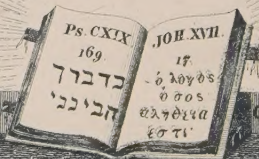 Ps. CXIX
169.
כדברך
הבינני
JOH. XVII.
17.
ὁ λογος
ὁ σος
αληθεια
εστι